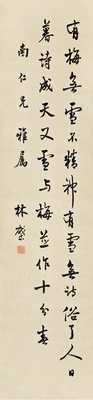 有梅無雪不精神有雪無詩俗了人日
暮詩成天又雪与梅並作十分春
南仁兄雅屬
林